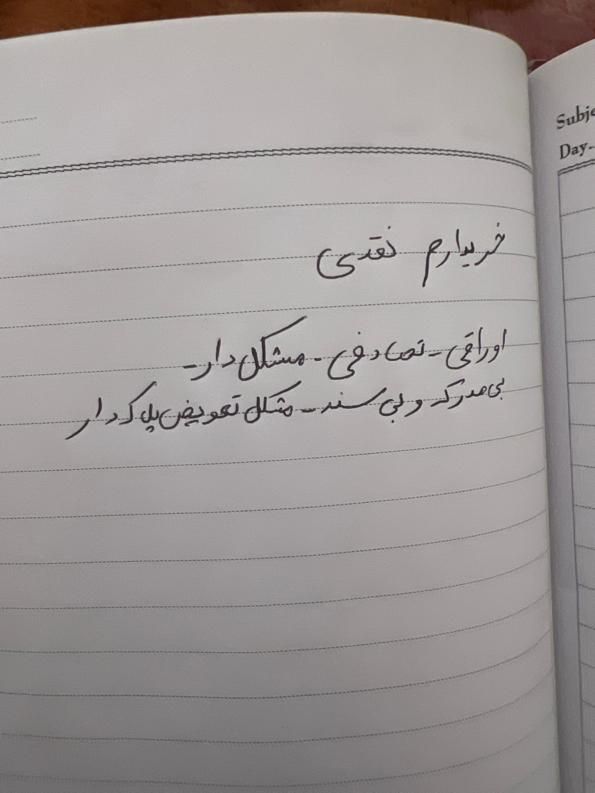 خریدارم نقدی
اوراقی - تصادفی - مشکل دار -
بی مدرک و بی سند - مشکل تعویض پلاک دار
Subje
Day-